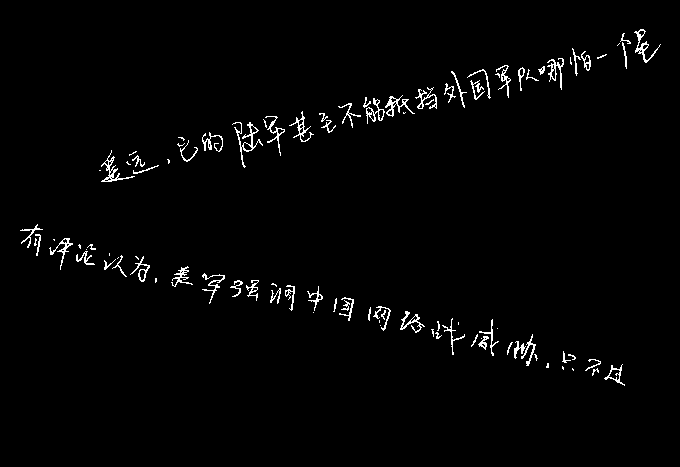 遥远,它的陆军甚至不能抵挡外国军队哪怕一个星
有评论认为,美军强调中国网络战威胁,只不过